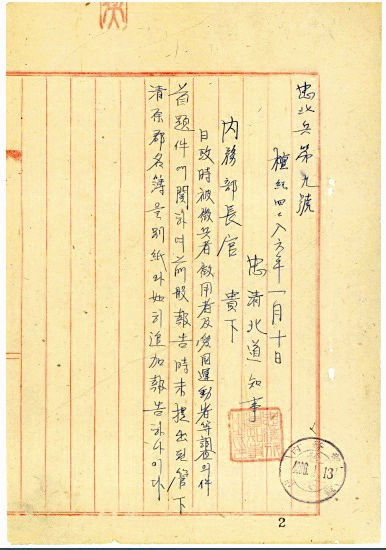 忠北兵第九號
檀紀四二八六年一月十日
忠清北道知事
内務部長官 貴下
日政時被徵兵者徵用者及愛国運動者等調査의件
首題件에關하여前般報告時未提出된管下
清原郡名簿를別紙와如히追加報告하나이다
2